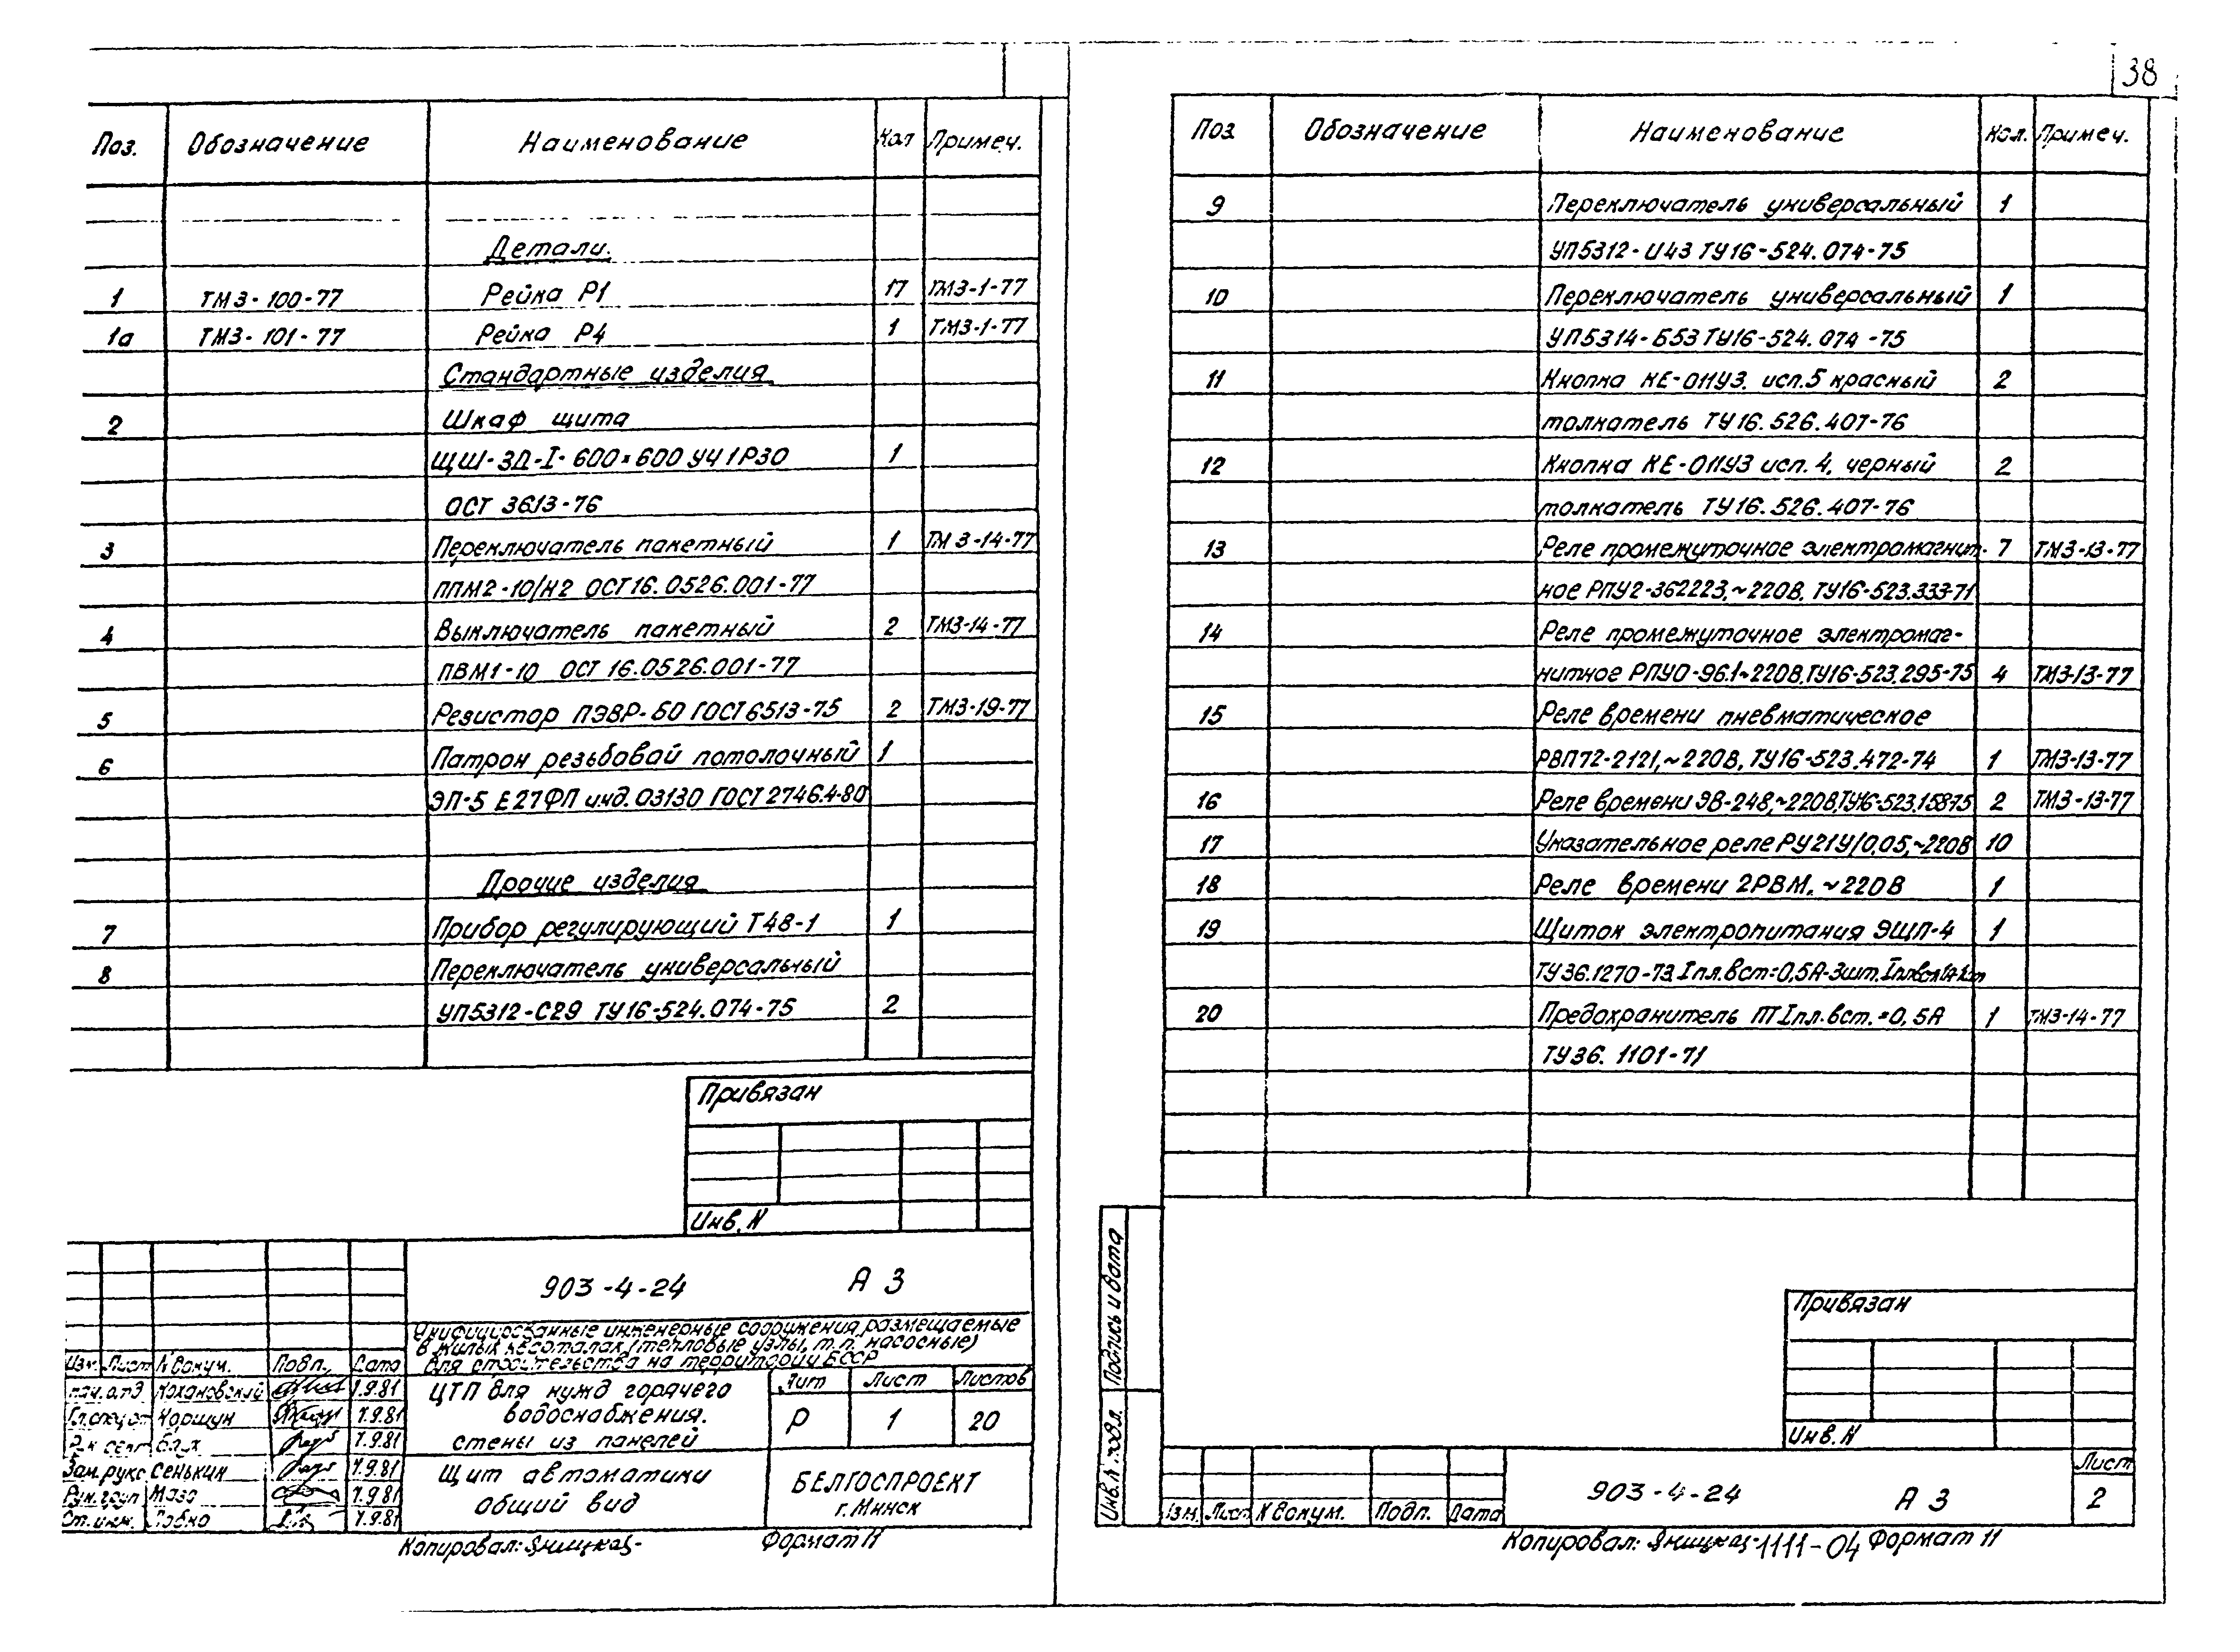 38
Поз. Обозначение Наименование Кол Примеч.
Детали.
1 ТМ3-100-77 Рейка Р1 17 ТМ3-1-77
1а ТМ3-101-77 Рейка Р4 1 ТМ3-1-77
Стандартные изделия
2 Шкаф щита
ЩШ-3Д-I-600×600 УЧ 1Р30 1
ОСТ 3613-76
3 Переключатель пакетный 1 ТМ3-14-77
ППМ2-10/Н2 ОСТ16.0526.001-77
4 Выключатель пакетный 2 ТМ3-14-77
ПВМ1-10 ОСТ 16.0526.001-77
5 Резистор ПЭВР-50 ГОСТ 6513-75 2 ТМ3-19-77
6 Патрон резьбовой потолочный 1
ЭП-5 Е27ФП инд. 03130 ГОСТ 2746.4-80
Прочие изделия
7 Прибор регулирующий Т48-1 1
8 Переключатель универсальный
УП5312-С29 ТУ16-524.074-75 2
Привязан
Инв. N
903-4-24 А 3
Унифицированные инженерные сооружения, размещаемые
в жилых кварталах (тепловые узлы, т.п. насосные)
для строительства на территории БССР
Изм. Лист N докум. Подп. Дата
Нач. отд Кохановский 1.9.81
Гл.спец.от Коршун 1.9.81
1.9.81
Зам. рукс Сенькин 1.9.81
Рук. груп Мазо 1.9.81
Ст. инж. 1.9.81
ЦТП для нужд горячего
водоснабжения.
стены из панелей
Лит Лист Листов
Р 1 20
Щит автоматики
общий вид
БЕЛГОСПРОЕКТ
г. Минск
Копировал: Яницкая- Формат 11
Поз. Обозначение Наименование Кол. Примеч.
9 Переключатель универсальный 1
УП5312-И43 ТУ16-524.074-75
10 Переключатель универсальный 1
УП5314-Б53 ТУ16-524.074-75
11 Кнопка КЕ-011У3. исп.5 красный 2
толкатель ТУ16.526.407-76
12 Кнопка КЕ-011У3 исп. 4, черный 2
толкатель ТУ16.526.407-76
13 Реле промежуточное электромагнит- 7 ТМ3-13-77
ное РПУ2-362223,~220В, ТУ16-523.333-71
14 Реле промежуточное электромаг-
нитное РПУ0-96.1~220В,ТУ16-523.295-75 4 ТМ3-13-77
15 Реле времени пневматическое
РВП72-2121,~220В, ТУ16-523.472-74 1 ТМ3-13-77
16 Реле времени ЭВ-248,~220В,ТУ16-523.158-75 2 ТМ3-13-77
17 Указательное реле РУ21У/0,05,~220В 10
18 Реле времени 2РВМ, ~220В 1
19 Щиток электропитания ЭЩП-4 1
ТУ36.1270-73. Iпл.вст=0,5А-3шт.
20 Предохранитель ПТ Iпл.вст.=0,5А 1 ТМ3-14-77
ТУ36. 1101-71
Привязан
Инв. N
Подпись и дата
Инв. N подл.
Изм. Лист N докум. Подп. Дата
903-4-24 А 3
Лист
2
Копировал: Яницкая- 1111-04 Формат 11